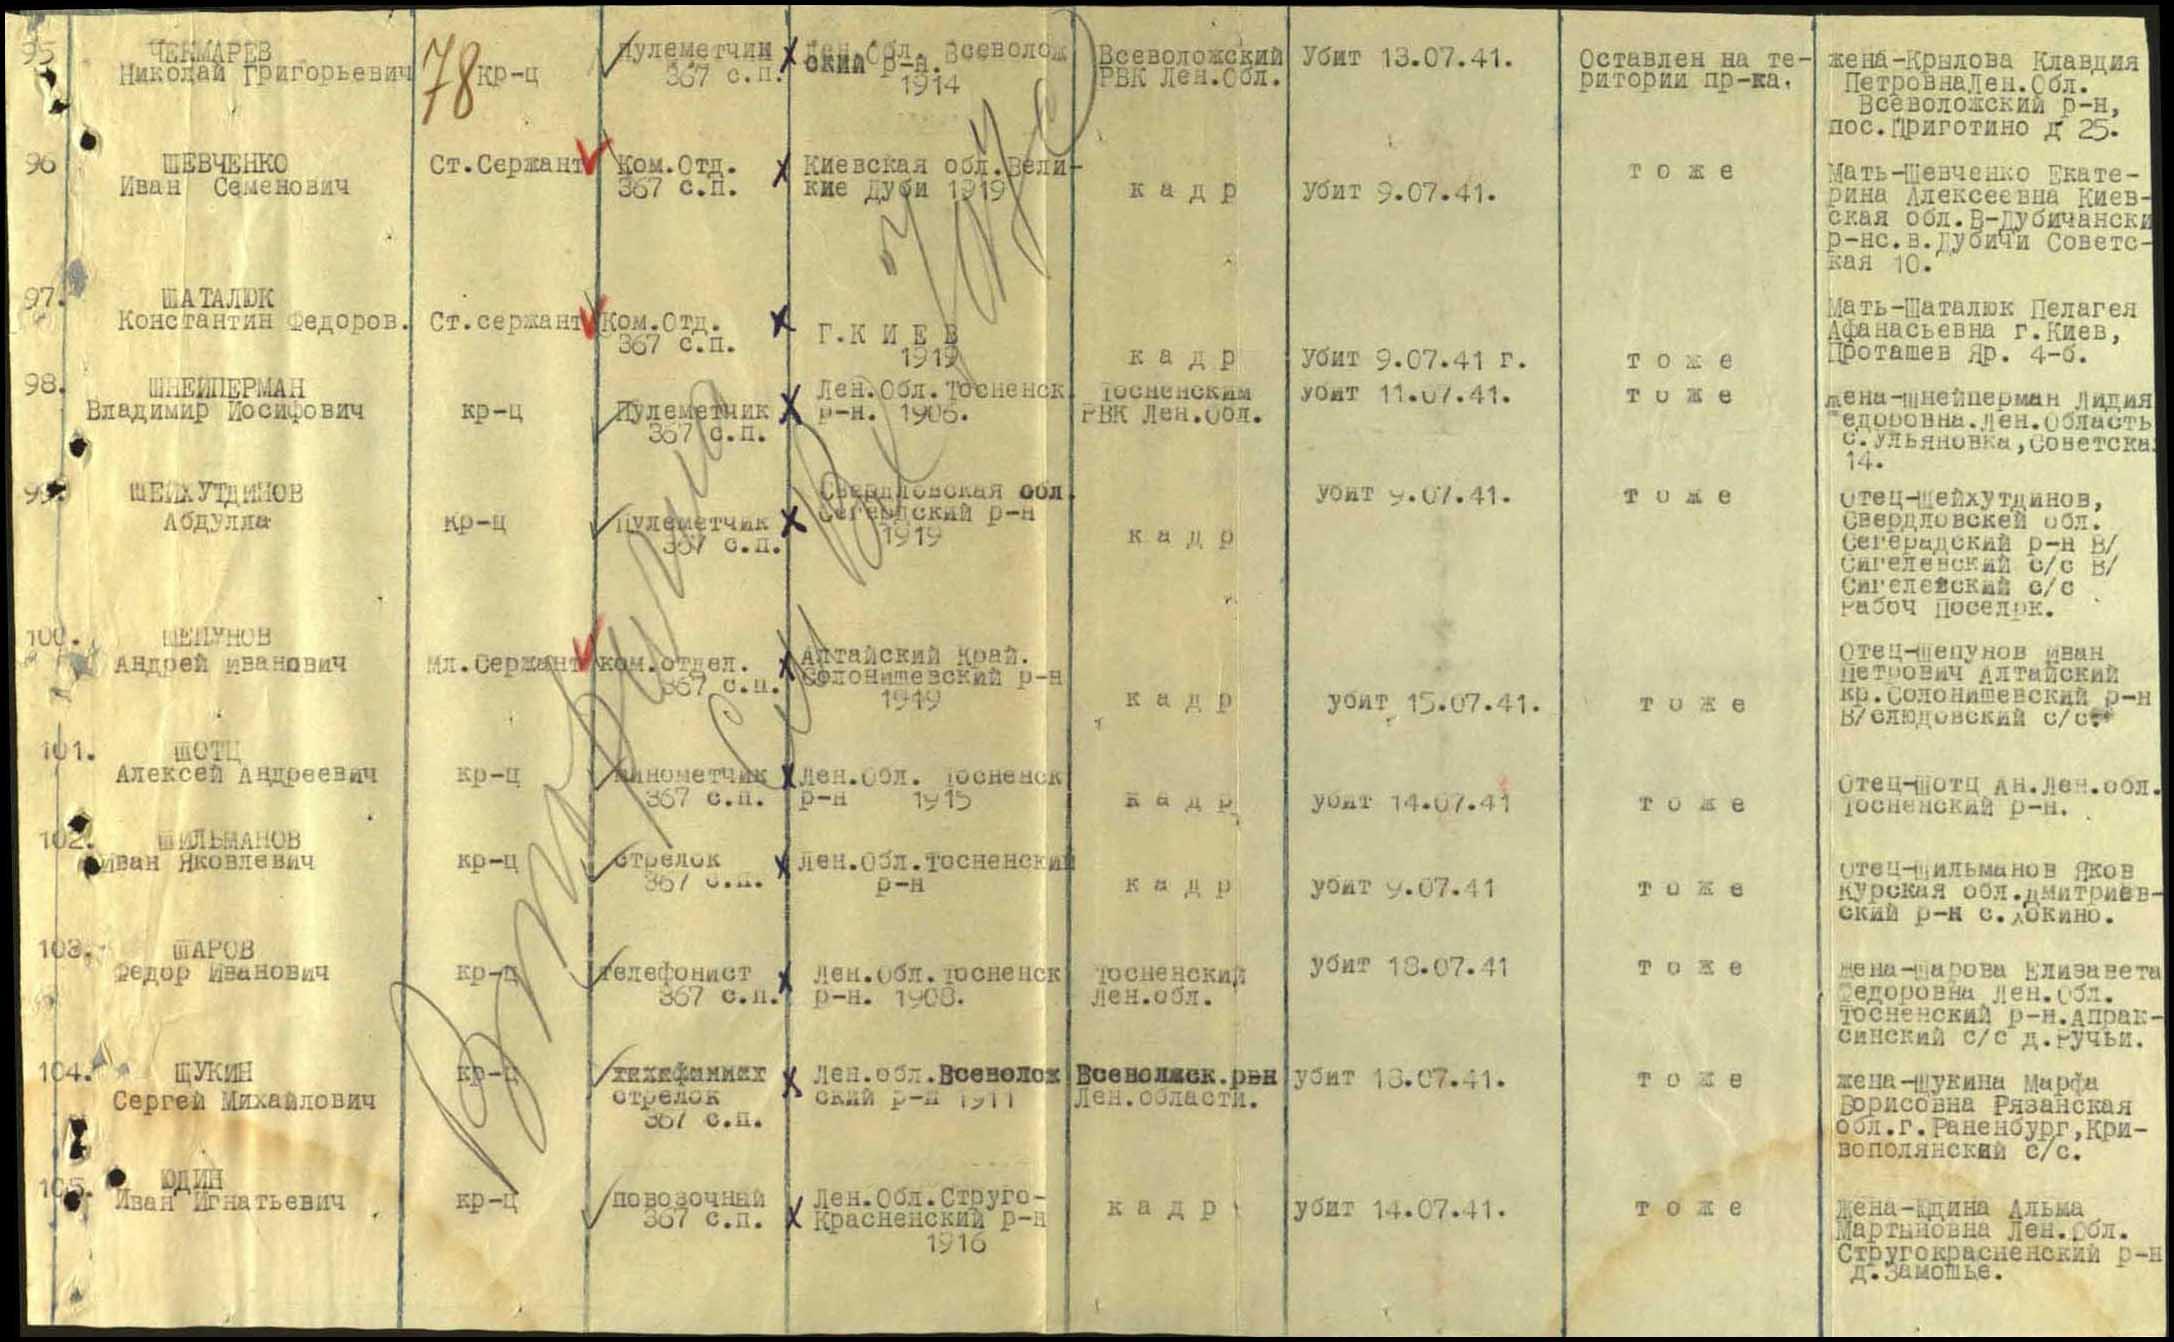 95 ЧЕКМАРЕВ
Николай Григорьевич
78
кр-ц
пулеметчик
367 с.п.
Лен.Обл. Всеволож
ский р-н.
1914
Всеволожский
РВК Лен.Обл.
Убит 13.07.41.
Оставлен на те-
ритории пр-ка.
жена-Крылова Клавдия
ПетровнаЛен.Обл.
Всеволожский р-н,
пос.Приготино д 25.
96 ШЕВЧЕНКО
Иван Семенович
Ст.Сержант
Ком.Отд.
367 с.п.
Киевская обл.Вели-
кие Дуби 1919
кадр
убит 9.07.41.
тоже
Мать-Шевченко Екате-
рина Алексеевна Киев-
ская обл.В-Дубичански
р-нс.в.Дубичи Советс-
кая 10.
97. ШАТАЛЮК
Константин Федоров.
Ст.сержант
Ком.Отд.
367 с.п.
Г.КИЕВ
1919
кадр
убит 9.07.41 г.
тоже
Мать-Шаталюк Пелагея
Афанасьевна г.Киев,
Проташев Яр. 4-б.
98. ШНЕЙПЕРМАН
Владимир Иосифович
кр-ц
Пулеметчик
367 с.п.
Лен.Обл.Тосненск.
р-н. 1906.
Тосненским
РВК Лен.Обл.
убит 11.07.41.
тоже
жена-Шнейперман Лидия
Федоровна.Лен.Область
с.Ульяновка,Советска
14.
99. ШЕЙХУТДИНОВ
Абдулла
кр-ц
Пулеметчик
367 с.п.
Свердловская обл.
р-н
1919
кадр
убит 9.07.41.
тоже
Отец-Шейхутдинов,
Свердловскей обл.
Сегерадский р-н В/
Сигелевский с/с В/
Сигелейский с/с
Рабоч Поселок.
100. ШЕПУНОВ
Андрей Иванович
Мл.Сержант
ком.отдел.
367 с.п.
Алтайский Край.
Солонишевский р-н
1919
кадр
убит 15.07.41.
тоже
Отец-Шепунов Иван
Петрович Алтайский
кр.Солонишевский р-н
В/слюдовский с/с.
101. ШОТЦ
Алексей Андреевич
кр-ц
минометчик
367 с.п.
Лен.Обл. Тосненск
р-н 1915
кадр
убит 14.07.41
тоже
Отец-Шотц Ан.Лен.обл.
Тосненский р-н.
102. ШИЛЬМАНОВ
Иван Яковлевич
кр-ц
стрелок
367 с.п.
Лен.Обл.Тосненский
р-н
кадр
убит 9.07.41
тоже
Отец-Шильманов Яков
Курская обл.Дмитриев-
ский р-н
103. ШАРОВ
Федор Иванович
кр-ц
телефонист
367 с.п.
Лен.Обл.Тосненск
р-н. 1908.
Тосненский
Лен.обл.
убит 18.07.41
тоже
жена-Шарова Елизавета
Федоровна Лен.Обл.
Тосненский р-н.Апрак-
синский с/с д.Ручьи.
104. ЩУКИН
Сергей Михайлович
кр-ц
стрелок
367 с.п.
Лен.обл.Всеволож
ский р-н 1911
Всеволжск.рвн
Лен.области.
убит 18.07.41.
тоже
жена-Щукина Марфа
Борисовна Рязанская
обл.г.Раненбург,Кри-
вополянский с/с.
105. ЮДИН
Иван Игнатьевич
кр-ц
повозочный
367 с.п.
Лен.Обл.Струго-
Красненский р-н
1916
кадр
убит 14.07.41.
тоже
Жена-Юдина Альма
Мартыновна Лен.Обл.
Стругокрасненский р-н
д.Замошье.